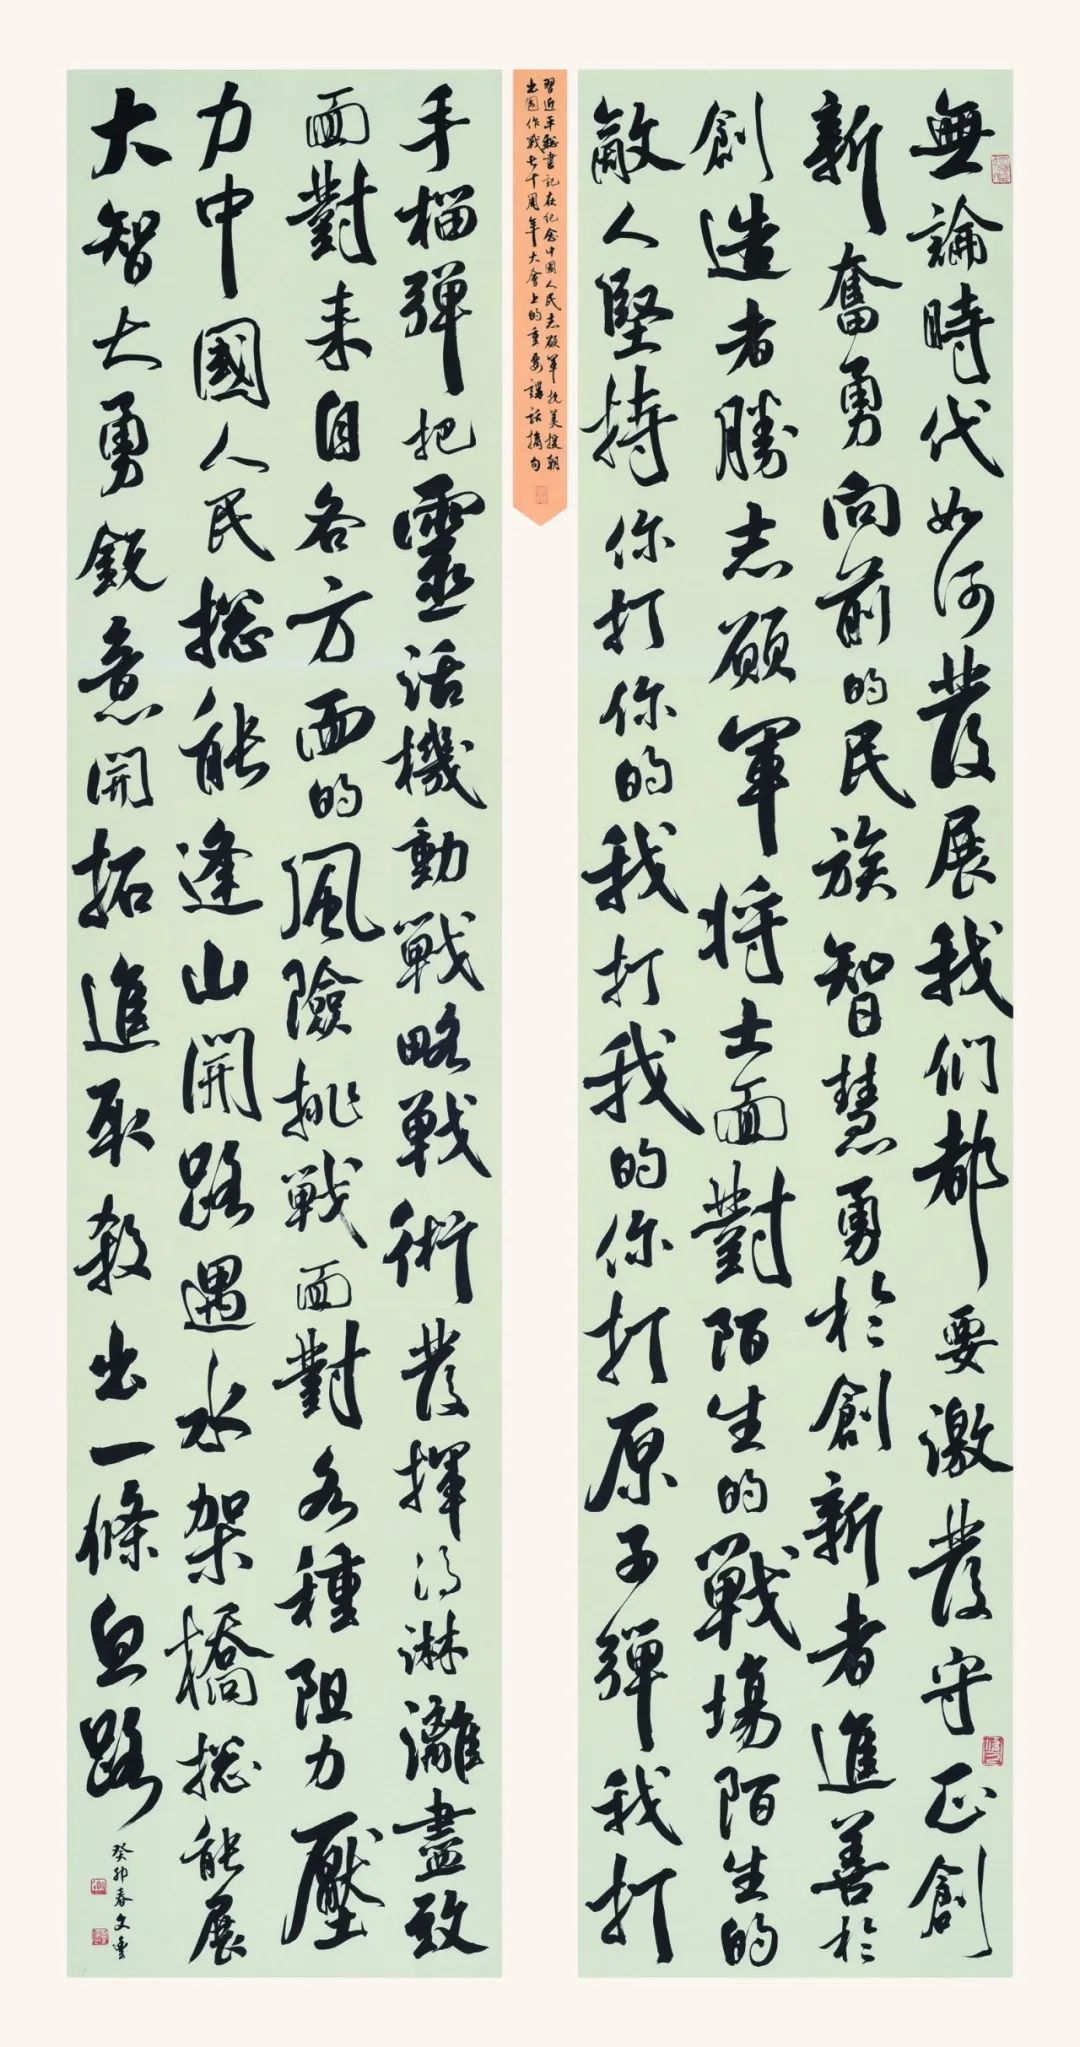 無論時代如何發展我们都要激發守正創
新奮勇向前的民族智慧勇於創新者進善於
創造者勝志願軍将士面對陌生的戰場陌生的
敵人堅持你打你的我打我的你打原子彈我打
手榴弹把靈活機動戦略戦術發揮得淋漓盡致
面對来自各方面的風險挑戦面對各種阻力壓
力中國人民揔能逢山開路遇水架橋揔能展
大智大勇銳意開拓進取殺出一條血路
癸卯春文重
習近平総書記在纪念中國人民志願軍抗美援朝
出國作戰七十周年大會上的重要講話摘句